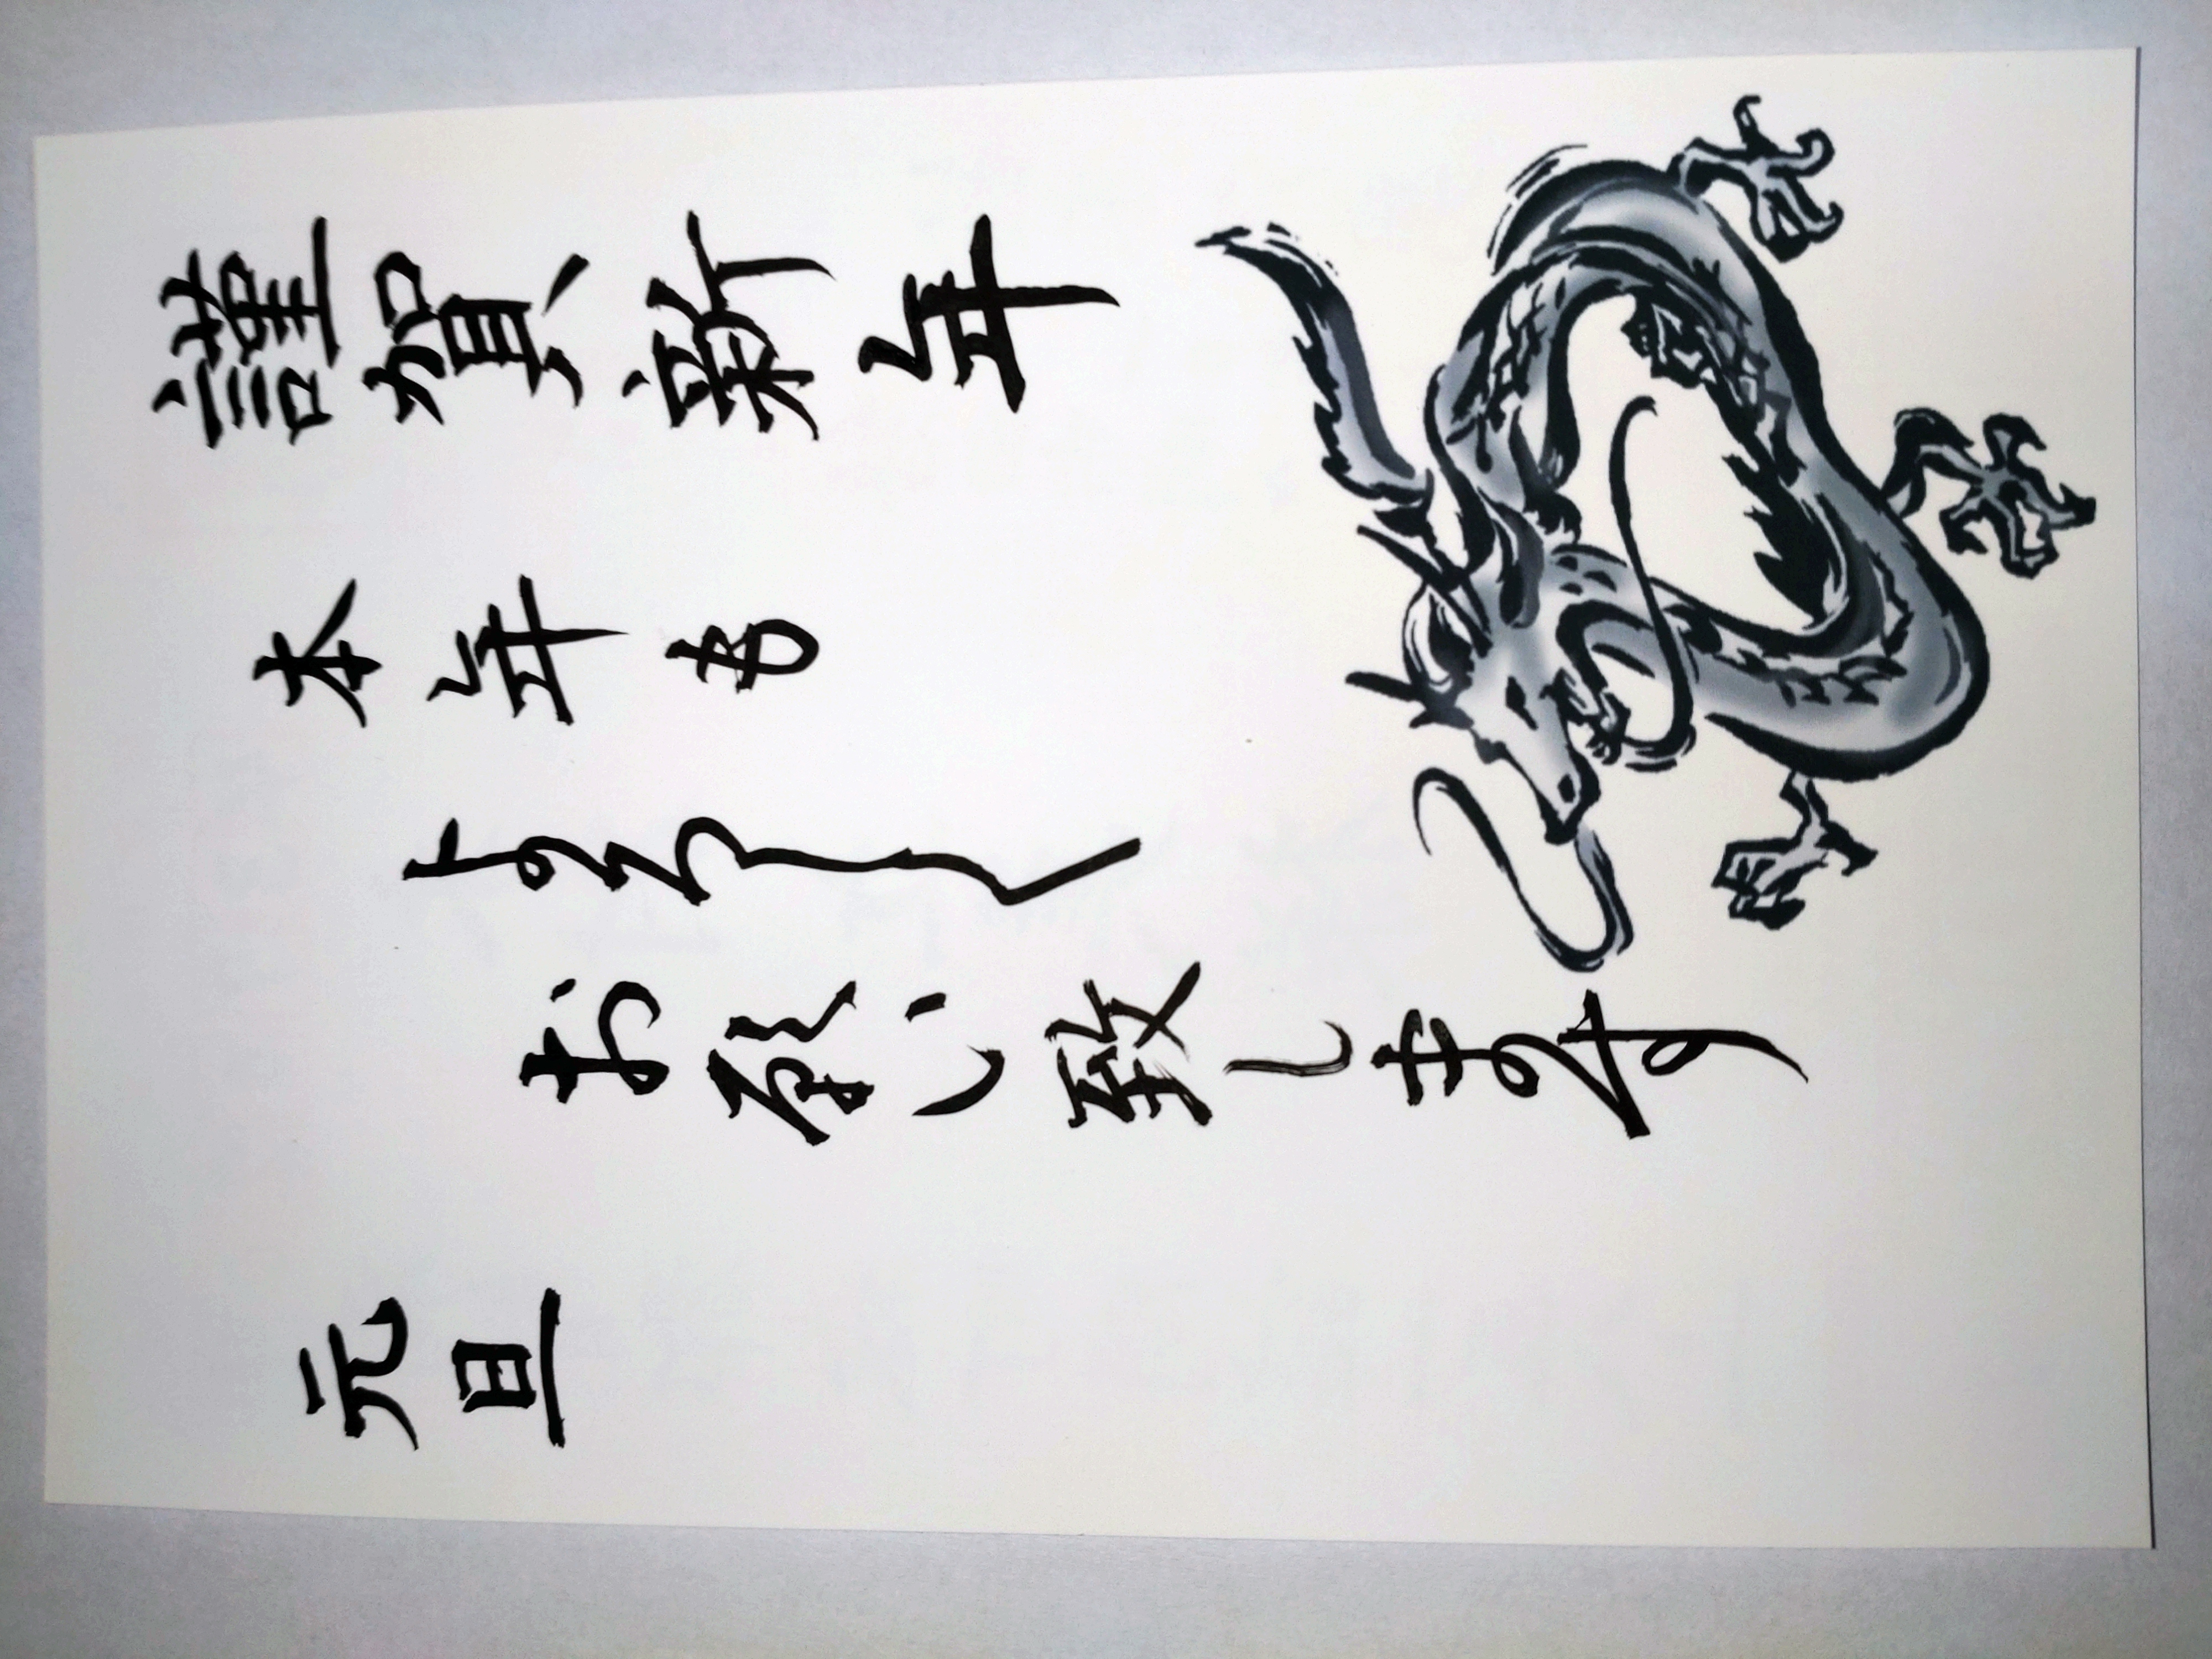 謹賀新年
本年も
よろしく
お願い致します
元旦